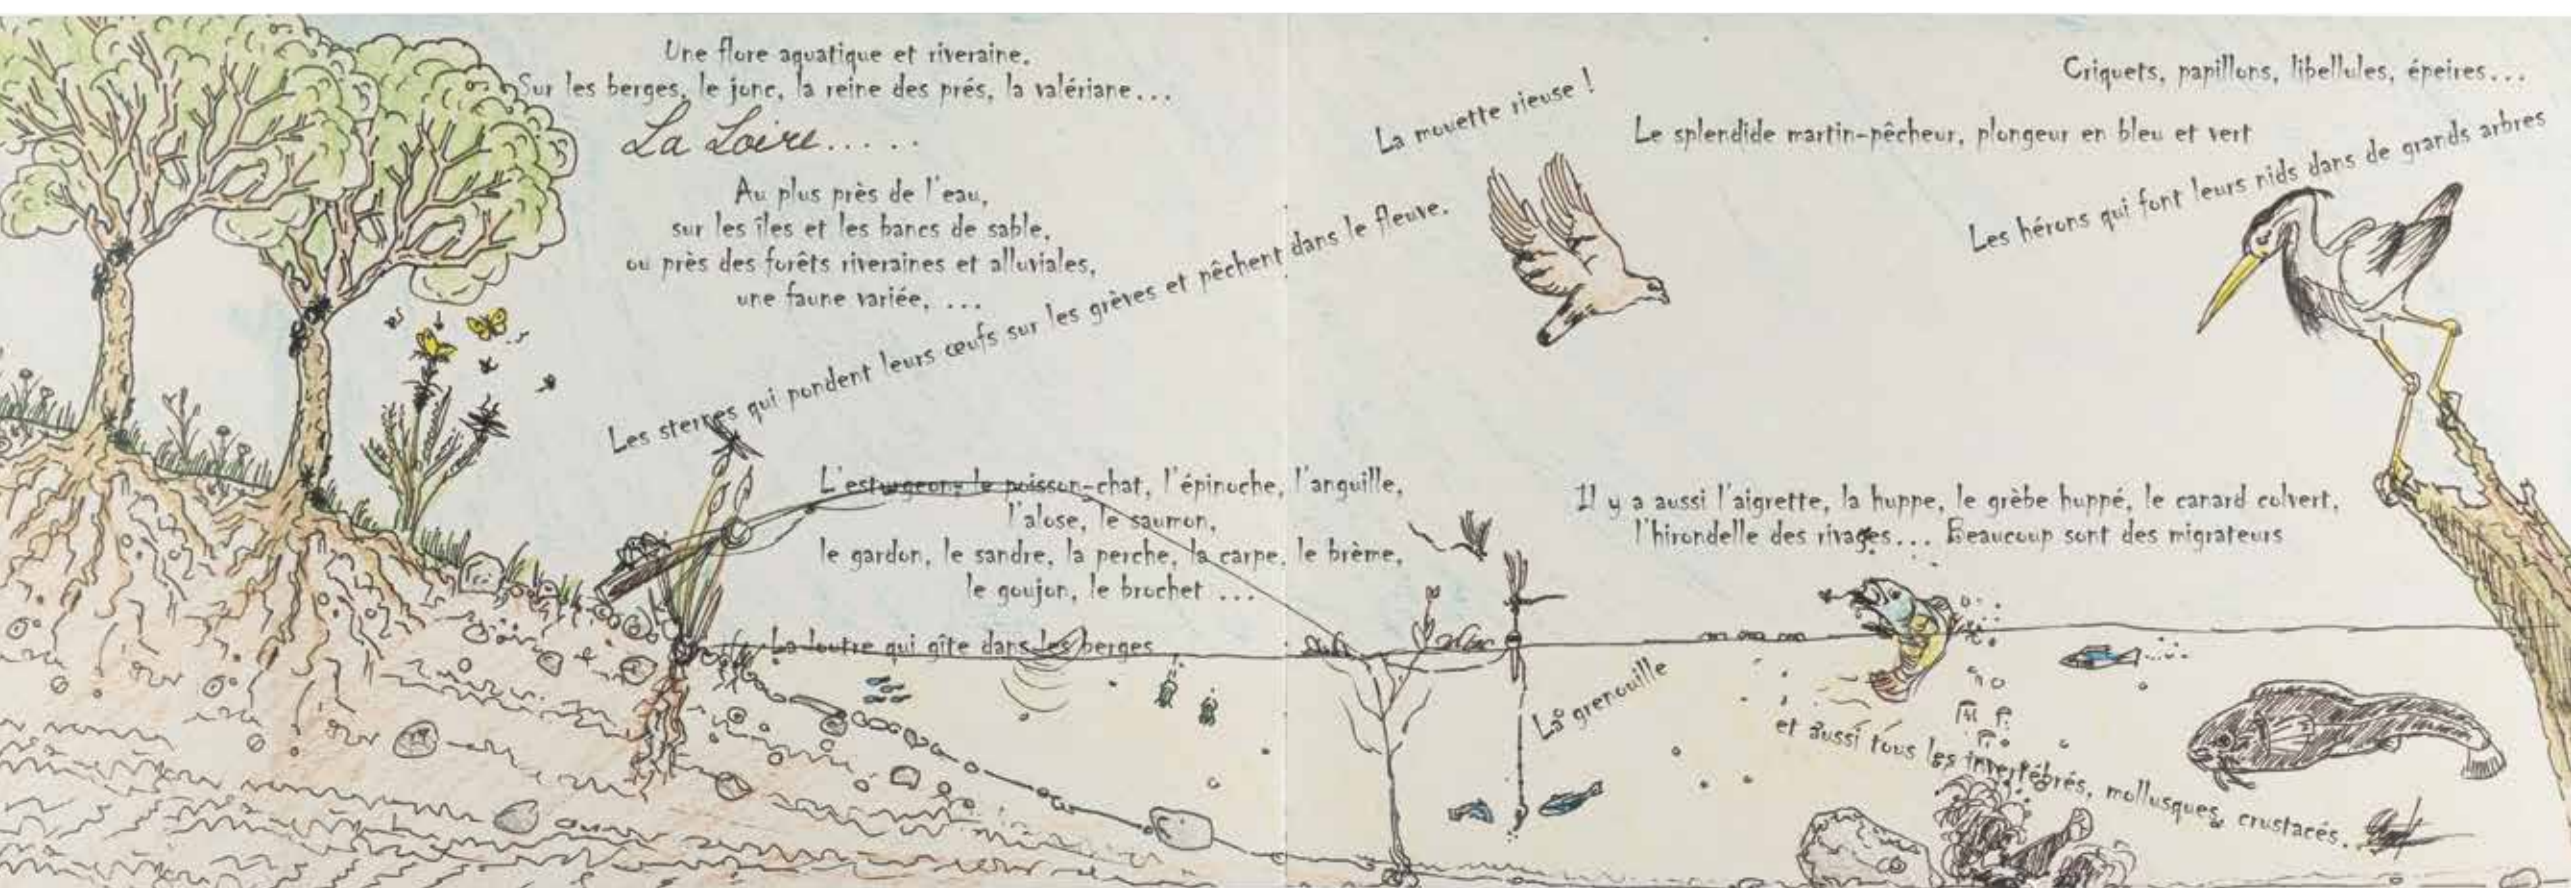 Une flore aquatique et riveraine.
Sur les berges, le jonc, la reine des prés, la valériane...
La Loire.....
Au plus près de l'eau,
sur les îles et les bancs de sable,
ou près des forêts riveraines et alluviales,
une faune variée, ...
Les sternes qui pondent leurs œufs sur les grèves et pêchent dans le fleuve.
La mouette rieuse !
Criquets, papillons, libellules, épeires...
Le splendide martin-pêcheur, plongeur en bleu et vert
Les hérons qui font leurs nids dans de grands arbres
L'esturgeon, le poisson-chat, l'épinoche, l'anguille,
l'alose, le saumon,
le gardon, le sandre, la perche, la carpe, le brème,
le goujon, le brochet ...
La loutre qui gîte dans les berges
Il y a aussi l'aigrette, la huppe, le grèbe huppé, le canard colvert,
l'hirondelle des rivages... Beaucoup sont des migrateurs
La grenouille
et aussi tous les invertébrés, mollusques, crustacés.